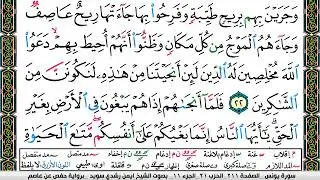 وَجَرَيْنَ بِهِم بِرِيحٍ طَيِّبَةٍ وَفَرِحُوا۟ بِهَا جَآءَتْهَا رِيحٌ عَاصِفٌ
وَجَآءَهُمُ ٱلْمَوْجُ مِن كُلِّ مَكَانٍ وَظَنُّوٓا۟ أَنَّهُمْ أُحِيطَ بِهِمْ دَعَوُا۟
ٱللَّهَ مُخْلِصِينَ لَهُ ٱلدِّينَ لَئِنْ أَنجَيْتَنَا مِنْ هَٰذِهِۦ لَنَكُونَنَّ مِنَ
ٱلشَّٰكِرِينَ ٢٢ فَلَمَّآ أَنجَىٰهُمْ إِذَا هُمْ يَبْغُونَ فِى ٱلْأَرْضِ بِغَيْرِ
ٱلْحَقِّ يَٰٓأَيُّهَا ٱلنَّاسُ إِنَّمَا بَغْيُكُمْ عَلَىٰٓ أَنفُسِكُم مَّتَٰعَ ٱلْحَيَوٰةِ
سورة يونس الصفحة ٢١١ الجزء ١١ بصوت الشيخ أيمن رشدي سويد - برواية حفص عن عاصم